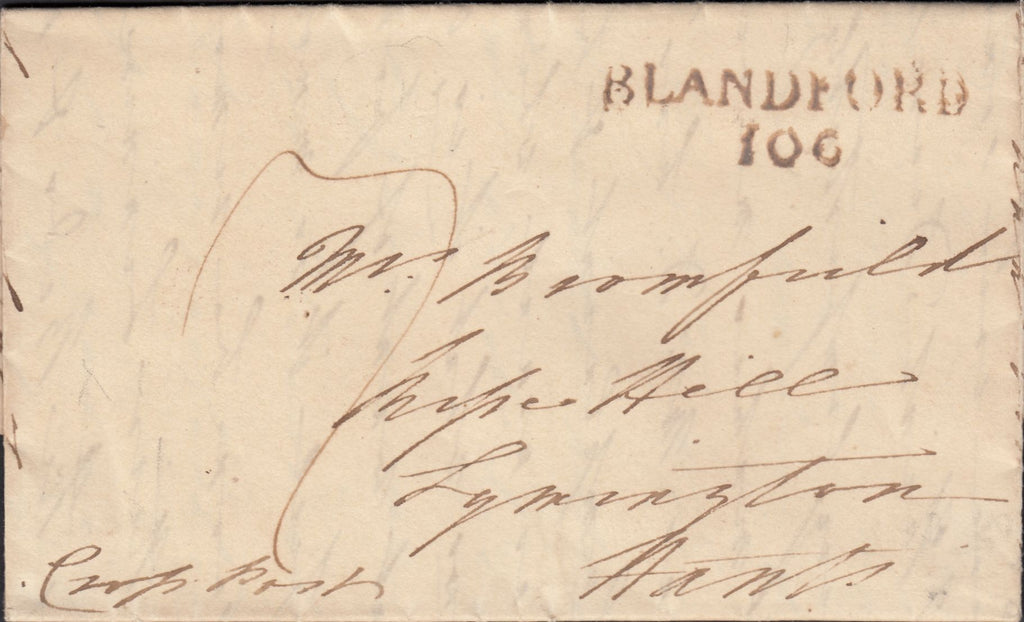 BLANDFORD
106
7
Mrs. Bromfield
Hill
Lymington
Hants.
Cross Post